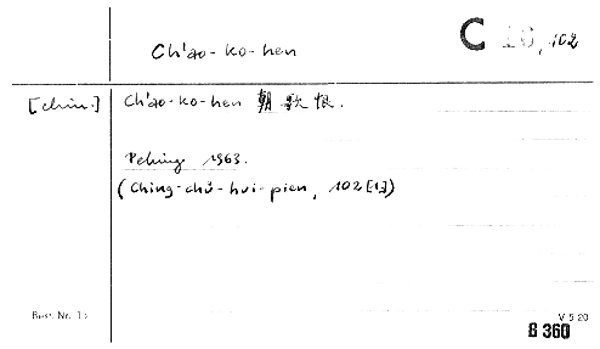 Ch'ao-ko-hen
C 16, 102
[chin.] Ch'ao-ko-hen 朝歌恨.
Peking 1963.
(Ching-chü-hui-pien, 102 [1])
Best. Nr. 15
V 5 20
8 360